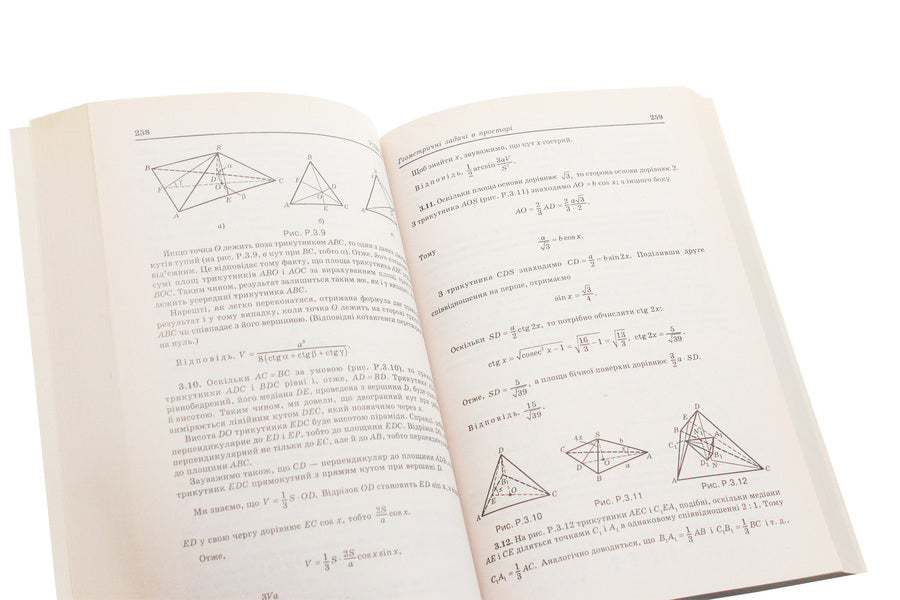 258
S
B
α
D
F
O
C
β
A
а)
B
D
O
A
E
C
б)
S
A
Рис. Р.3.9
Якщо точка O лежить поза трикутником ABC, то один з даних
кутів тупий (на рис. Р.3.9, в кут при BC, тобто α). Отже, його
від'ємним. Це відповідає тому факту, що площа трикутника ABC
сумі площ трикутників ABO і AOC за вирахуванням площі
BOC. Таким чином, результат залишиться таким же, як і у
лежить усередині трикутника ABC.
Нарешті, як легко переконатися, отримана формула дає
результат і у тому випадку, коли точка O лежить на стороні
ABC чи співпадає з його вершиною. (Відповідні котангенси
на нуль.)
Відповідь. V = a³ / 8(ctgα + ctgβ + ctgγ).
3.10. Оскільки AC = BC за умовою (рис. Р.3.10), то
трикутники ADC і BDC рівні і, отже, AD = BD. Трикутник
рівнобедрений, його медіана DE, проведена з вершини D, буде
й висотою. Таким чином, ми довели, що двогранний кут при
вимірюється лінійним кутом DEC, який позначимо через x.
Висота DO трикутника EDC буде висотою піраміди. Справді,
перпендикулярне до ED і EP, тобто до площини EDC. Відрізок DO
перпендикулярний не тільки до EC, але й до AB, тобто
до площини ABC.
Зауважимо також, що CD — перпендикуляр до площини ADB
трикутник EDC прямокутний з прямим кутом при вершині D.
Ми знаємо, що V = 1/3 S · OD. Відрізок OD становить ED sin x, а
ED у свою чергу дорівнює EC cos x, тобто 2S/a cos x.
Отже,
V = 1/3 S · 2S/a cos x sin x,
3Va
Геометричні задачі в просторі
259
Щоб знайти x, зауважимо, що кут x гострий.
Відповідь. 1/2 arcsin 3aV/S².
3.11. Оскільки площа основи дорівнює √3, то сторона основи дорівнює 2.
З трикутника AOS (рис. Р.3.11) знаходимо AO = b cos x; з іншого боку
AO = 2/3 AD = 2/3 a√3/2.
Тому
a/√3 = b cos x.
З трикутника CDS знаходимо CD = a/2 = b sin 2x. Поділивши друге
співвідношення на перше, отримаємо
sin x = √3/4
Оскільки SD = a/2 ctg 2x, то потрібно обчислити ctg 2x:
ctg x = √(cosec² x − 1) = √(16/3 − 1) = √(13/3), ctg 2x = 5/√39.
Отже, SD = 5/√39, а площа бічної поверхні дорівнює 3/2 a · SD.
Відповідь. 15/√39.
D
x
O
E
A
C
Рис. Р.3.10
4x
S
b
C
A
D
O
a
B
Рис. Р.3.11
D
E
B
N₁
B₁
D₁
N
A
C
Рис. Р.3.12
3.12. На рис. Р.3.12 трикутники AEC і C₁EA₁ подібні, оскільки медіани
AE і CE діляться точками C₁ і A₁ в однаковому співвідношенні 2 : 1. Тому
C₁A₁ = 1/3 AC. Аналогічно доводиться, що B₁A₁ = 1/3 AB і C₁B₁ = 1/3 BC і т. д.,